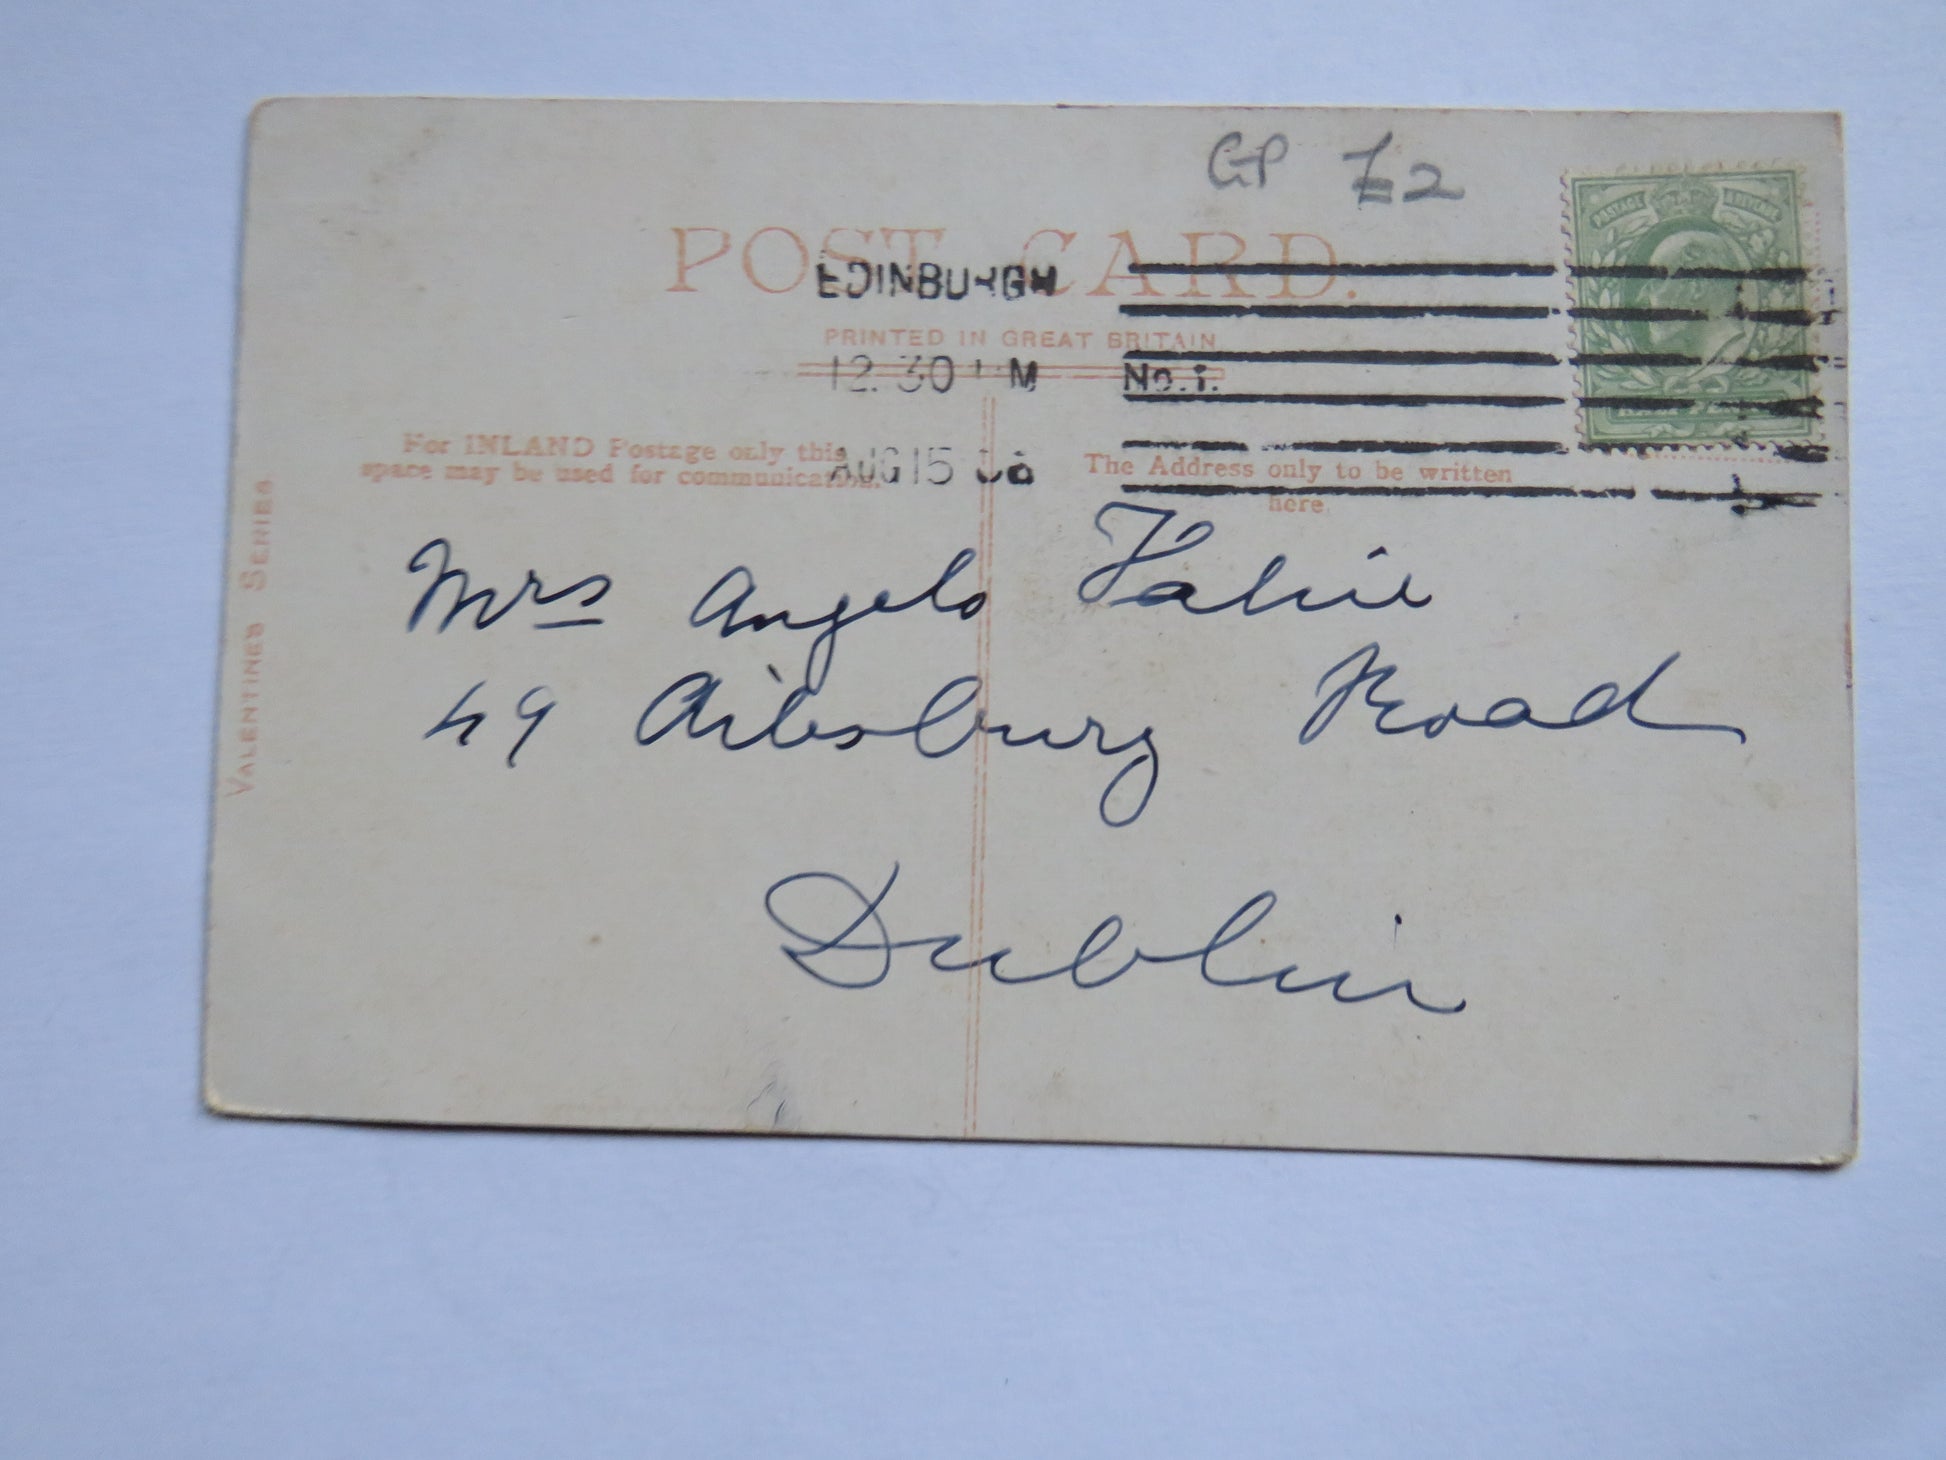 GP £2
POST CARD.
EDINBURGH
PRINTED IN GREAT BRITAIN
12.30 PM No.1.
For INLAND Postage only this
space may be used for communication.
AUG 15
The Address only to be written
here.
VALENTINES SERIES
POSTAGE REVENUE
Mrs Angelo Fahie
49 Ailesbury Road
Dublin